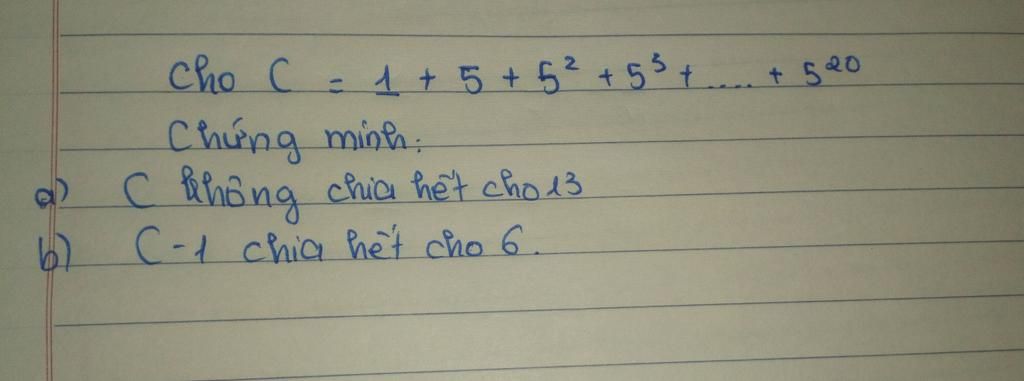 Cho C = 1 + 5 + 5² + 5³ + .... + 5²⁰
Chứng minh:
a) C không chia hết cho 13
b) C-1 chia hết cho 6.